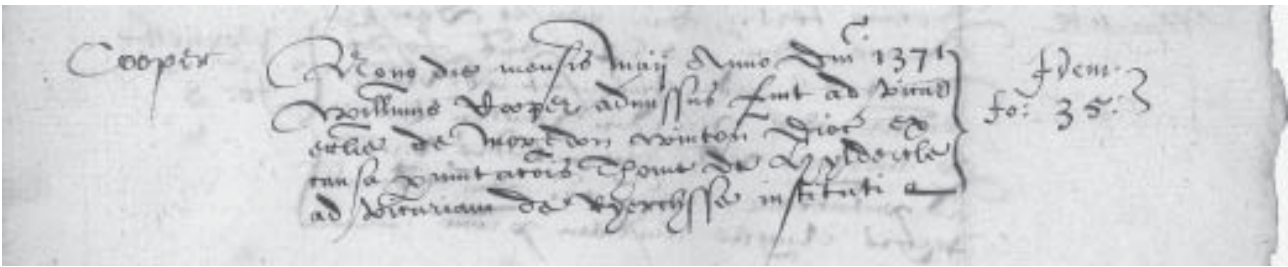 Cooper
Nono die mensis Maij Anno Dni 1371
Willmus Cooper admissus fuit ad vicar
ecclie de Mordon Winton Dioc ex
causa pmutacois Thome de
ad vicariam de institut
Idem
fo: 35: